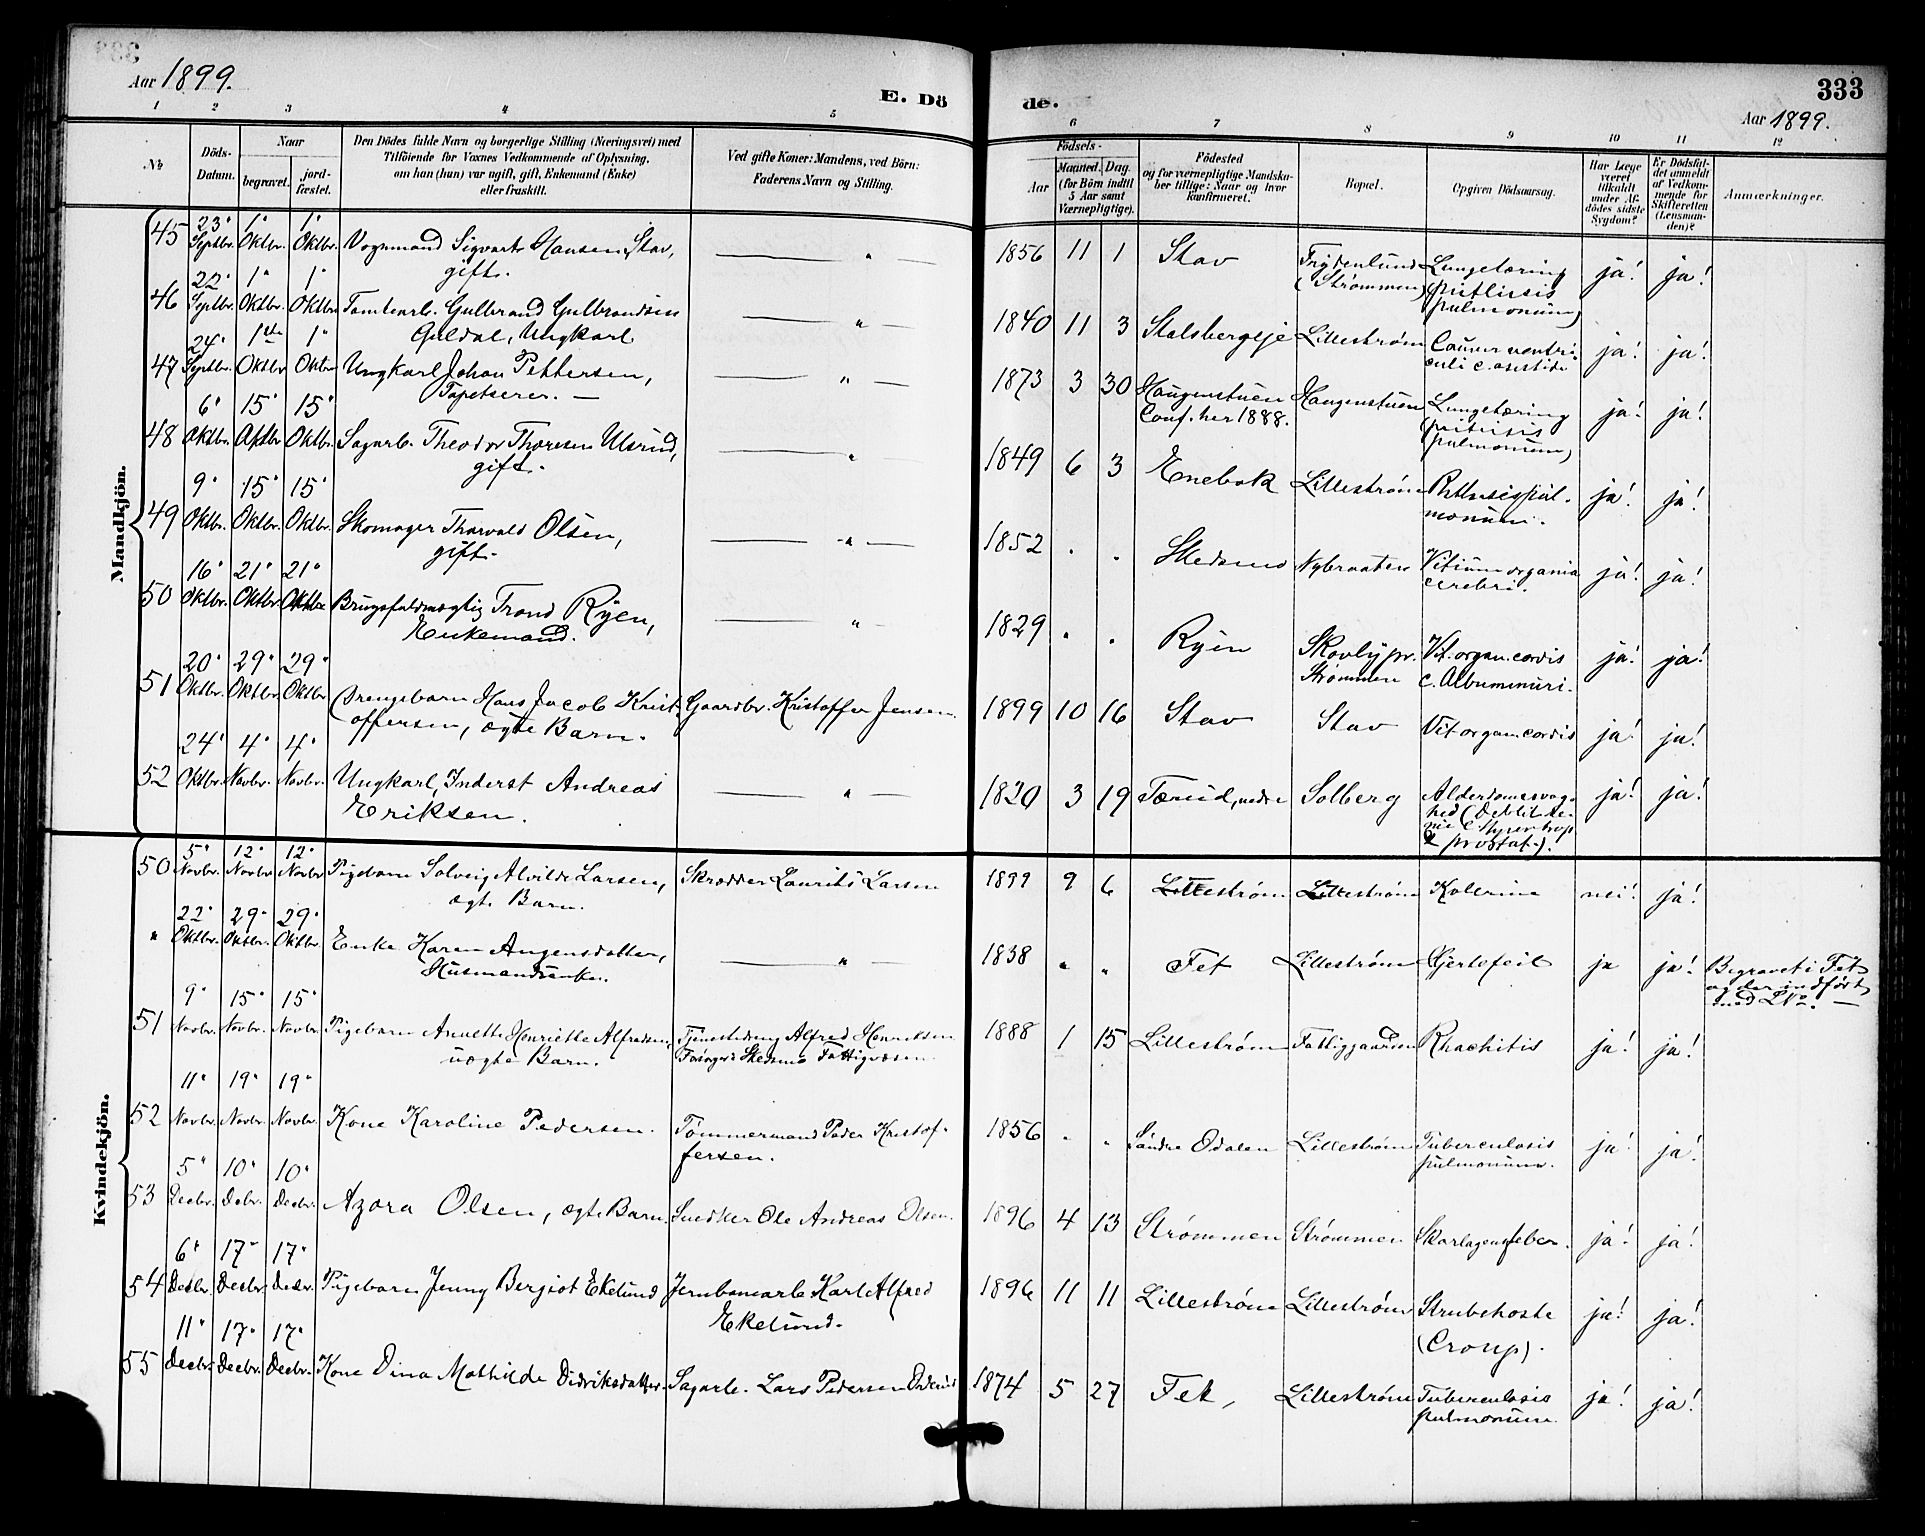 Aar 1899.
E. Dö
de.
333
Aar 1899.
1 2 3 4 5 6 7 8 9 10 11 12
No
Döds-
Datum.
Naar
begravet.
jord-
fæstet.
Den Dödes fulde Navn og borgerlige Stilling (Næringsvei) med
Tilföiende for Voxnes Vedkommende af Oplysning,
om han (hun) var ugift, gift, Enkemand (Enke)
eller fraskilt.
Ved gifte Koner: Mandens, ved Börn:
Faderens Navn og Stilling.
Födsels-
Aar
Maaned. Dag.
(for Börn indtil
5 Aar samt
Værnepligtige).
Födested
og for værnepligtige Mandska-
ber tillige: Naar og hvor
konfirmeret.
Bopæl.
Opgiven Dödsaarsag.
Har Læge
været
tilkaldt
under Af-
dödes sidste
Sygdom?
Er Dödsfal-
det anmeldt
af Vedkom-
mende for
Skifteretten
(Lensman-
den)?
Anmærkninger.
Mandkjön.
45 23' Septbr. 1' Oktbr. 1' Oktbr. Vognmand Sigvart Hansen Stav, " 1856 11 1 Stav Frydenlund Lungetæring ja! ja!
gift. (Strømmen) (phthisis
pulmonum)
46 22' Septbr. 1' Oktbr. 1' Oktbr. Tomtearb. Gulbrand Gulbrandsen " 1840 11 3 Stalsbergeje Lillestrøm Cancer ventri- ja! ja!
Guldal, Ungkarl culi c. ascitide
47 24' Septbr. 1ste Oktbr. 1' Oktbr. Ungkarl Johan Pettersen, " 1873 3 30 Haugenstuen Haugenstuen Lungetæring ja! ja!
Tapetserer. — Conf. her 1888. (phthisis
pulmonum)
48 6' Oktbr. 15' Oktbr. 15' Oktbr. Sagarb. Theodor Thoresen Ulsrud, " 1849 6 3 Enebak Lillestrøm Phthisis pul- ja! ja!
gift. monum.
49 9' Oktbr. 15' Oktbr. 15' Oktbr. Skomager Thorvald Olsen, " 1852 " " Skedsmo Nybraaten Vitium organic ja! ja!
gift. cerebri.
50 16' Oktbr. 21' Oktbr. 21' Oktbr. Brugsfuldmægtig Trond Ryen, " 1829 " " Ryen Skovly pr. Vit. organ. cordis ja! ja!
Enkemand. Strømmen c. Albuminuri.
51 20' Oktbr. 29' Oktbr. 29' Oktbr. Drengebarn Hans Jacob Krist- Gaardbr. Kristoffer Jensen 1899 10 16 Stav Stav Vit organ. cordis ja! ja!
offersen, ægte Barn.
52 24' Oktbr. 4' Novbr. 4' Novbr. Ungkarl, Inderst Andreas " 1820 3 19 Tærud, nedre Solberg Alderdomssvag- ja! ja!
Eriksen. hed (Debilit. se-
nil c Hypertrop
prostat.).
Kvindekjön.
50 5' Novbr. 12' Novbr. 12' Novbr. Pigebarn Solveig Alvilde Larsen, Skrædder Laurits Larsen 1899 9 6 Lillestrøm Lillestrøm Kolerine nei! ja!
ægte Barn.
" 22' Oktbr. 29' Oktbr. 29' Oktbr. Enke Karen Augensdatter, " 1838 " " Fet Lillestrøm Hjertefeil ja ja! Begravet i Fet
Husmandsenke. og der indført
med No. —
51 9' Novbr. 15' Novbr. 15' Novbr. Pigebarn Annette Henriette Alfredsen, Tjenestedreng Alfred Henriksen 1888 1 15 Lillestrøm Fattiggaarden Rhachitis ja! ja!
uægte Barn. Skedsmo Fattigvæsen
52 11' Novbr. 19' Novbr. 19' Novbr. Kone Karoline Pedersen. Tømmermand Peder Kristof- 1856 " " Søndre Odalen Lillestrøm Tuberculosis ja! ja!
fersen. pulmonum.
53 5' Decbr. 10' Decbr. 10' Decbr. Azora Olsen, ægte Barn. Snedker Ole Andreas Olsen. 1896 4 13 Strømmen Strømmen Skarlagensfeber. ja! ja!
54 6' Decbr. 17' Decbr. 17' Decbr. Pigebarn Jenny Bergiot Ekelund Jernbanearb. Karl Alfred 1896 11 11 Lillestrøm Lillestrøm Strubehoste ja! ja!
Ekelund. (Croup).
55 11' Decbr. 17' Decbr. 17' Decbr. Kone Dina Mathilde Didriksdatter. Sagarb. Lars Pedersen 1874 5 27 Fet, Lillestrøm Tuberculosis ja! ja!
pulmonum.